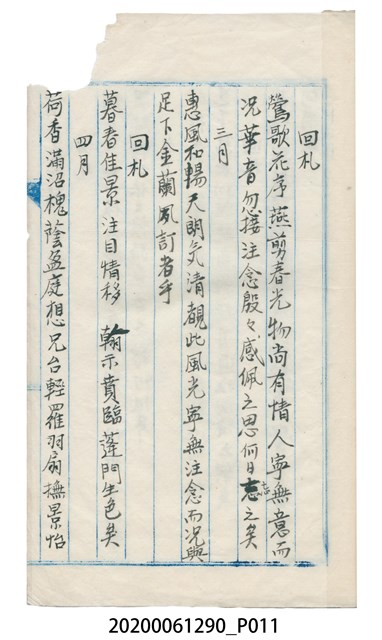 回札
鶯歌花序燕剪春光物尚有情人寧無意而
況華音忽接注念殷々感佩之思何日忘之矣
三月
惠風和暢天朗气清覩此風光寧無注念而况與
足下金蘭夙訂者乎
回札
暮春佳景注目情移翰示賁臨蓬門生色矣
四月
荷香滿沼槐蔭盈庭想兄台輕羅羽扇撫景怡
20200061290_P011